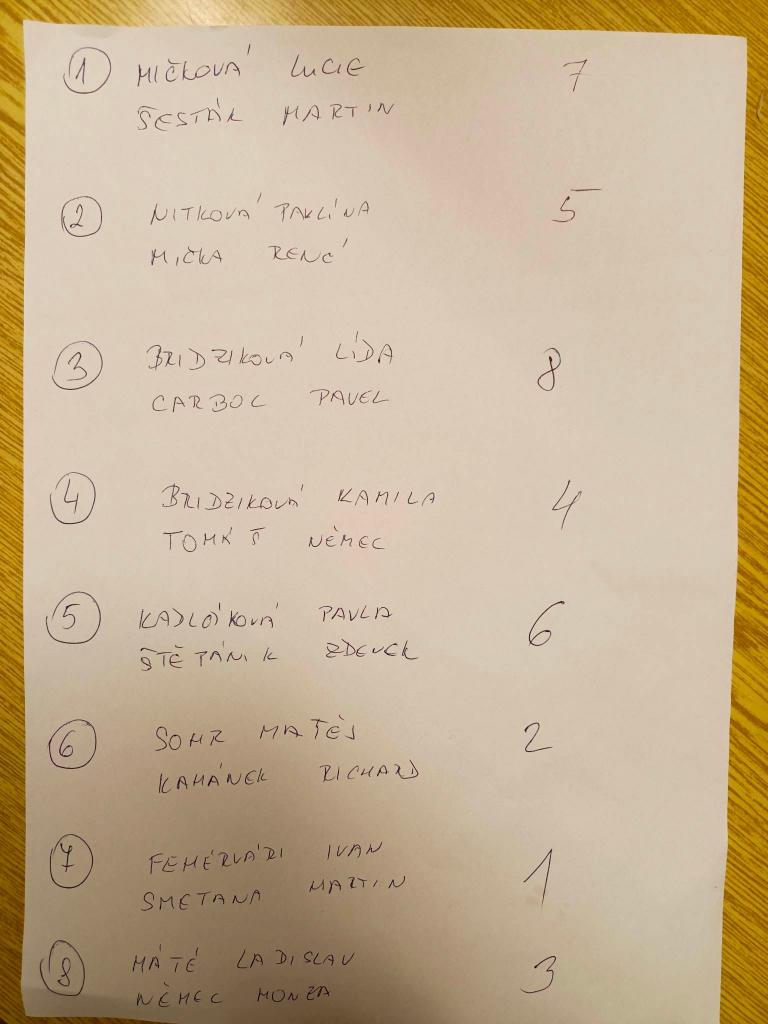 1 MIČKOVÁ LUCIE 7
ŠESTÁK MARTIN
2 NITKOVÁ PAVLÍNA 5
MIČKA RENÉ
3 BRIDZIKOVÁ LÍDA 8
CARBOL PAVEL
4 BRIDZIKOVÁ KAMILA 4
TOMÁŠ NĚMEC
5 PAVLA 6
ŠTĚPÁNIK ZDENEK
6 SOHR MATĚJ 2
KAMÁNEK RICHARD
7 FEHÉRVÁRI IVAN 1
SMETANA MARTIN
8 MÁTÉ LADISLAV 3
NĚMEC HONZA